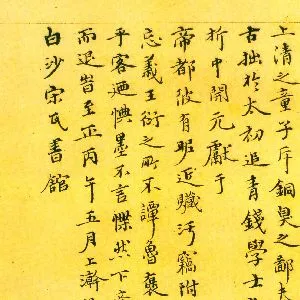 上清之童子斥銅臭之鄙夫
古拙於太初追青錢學士
析中開元獻于
帝都陂有耶近賤汚竊附
忘義王衍之所不譚魯褒
乎客迺愧墨不言慄然下
而退旹至正丙午五月上澣
白沙宋氏書館